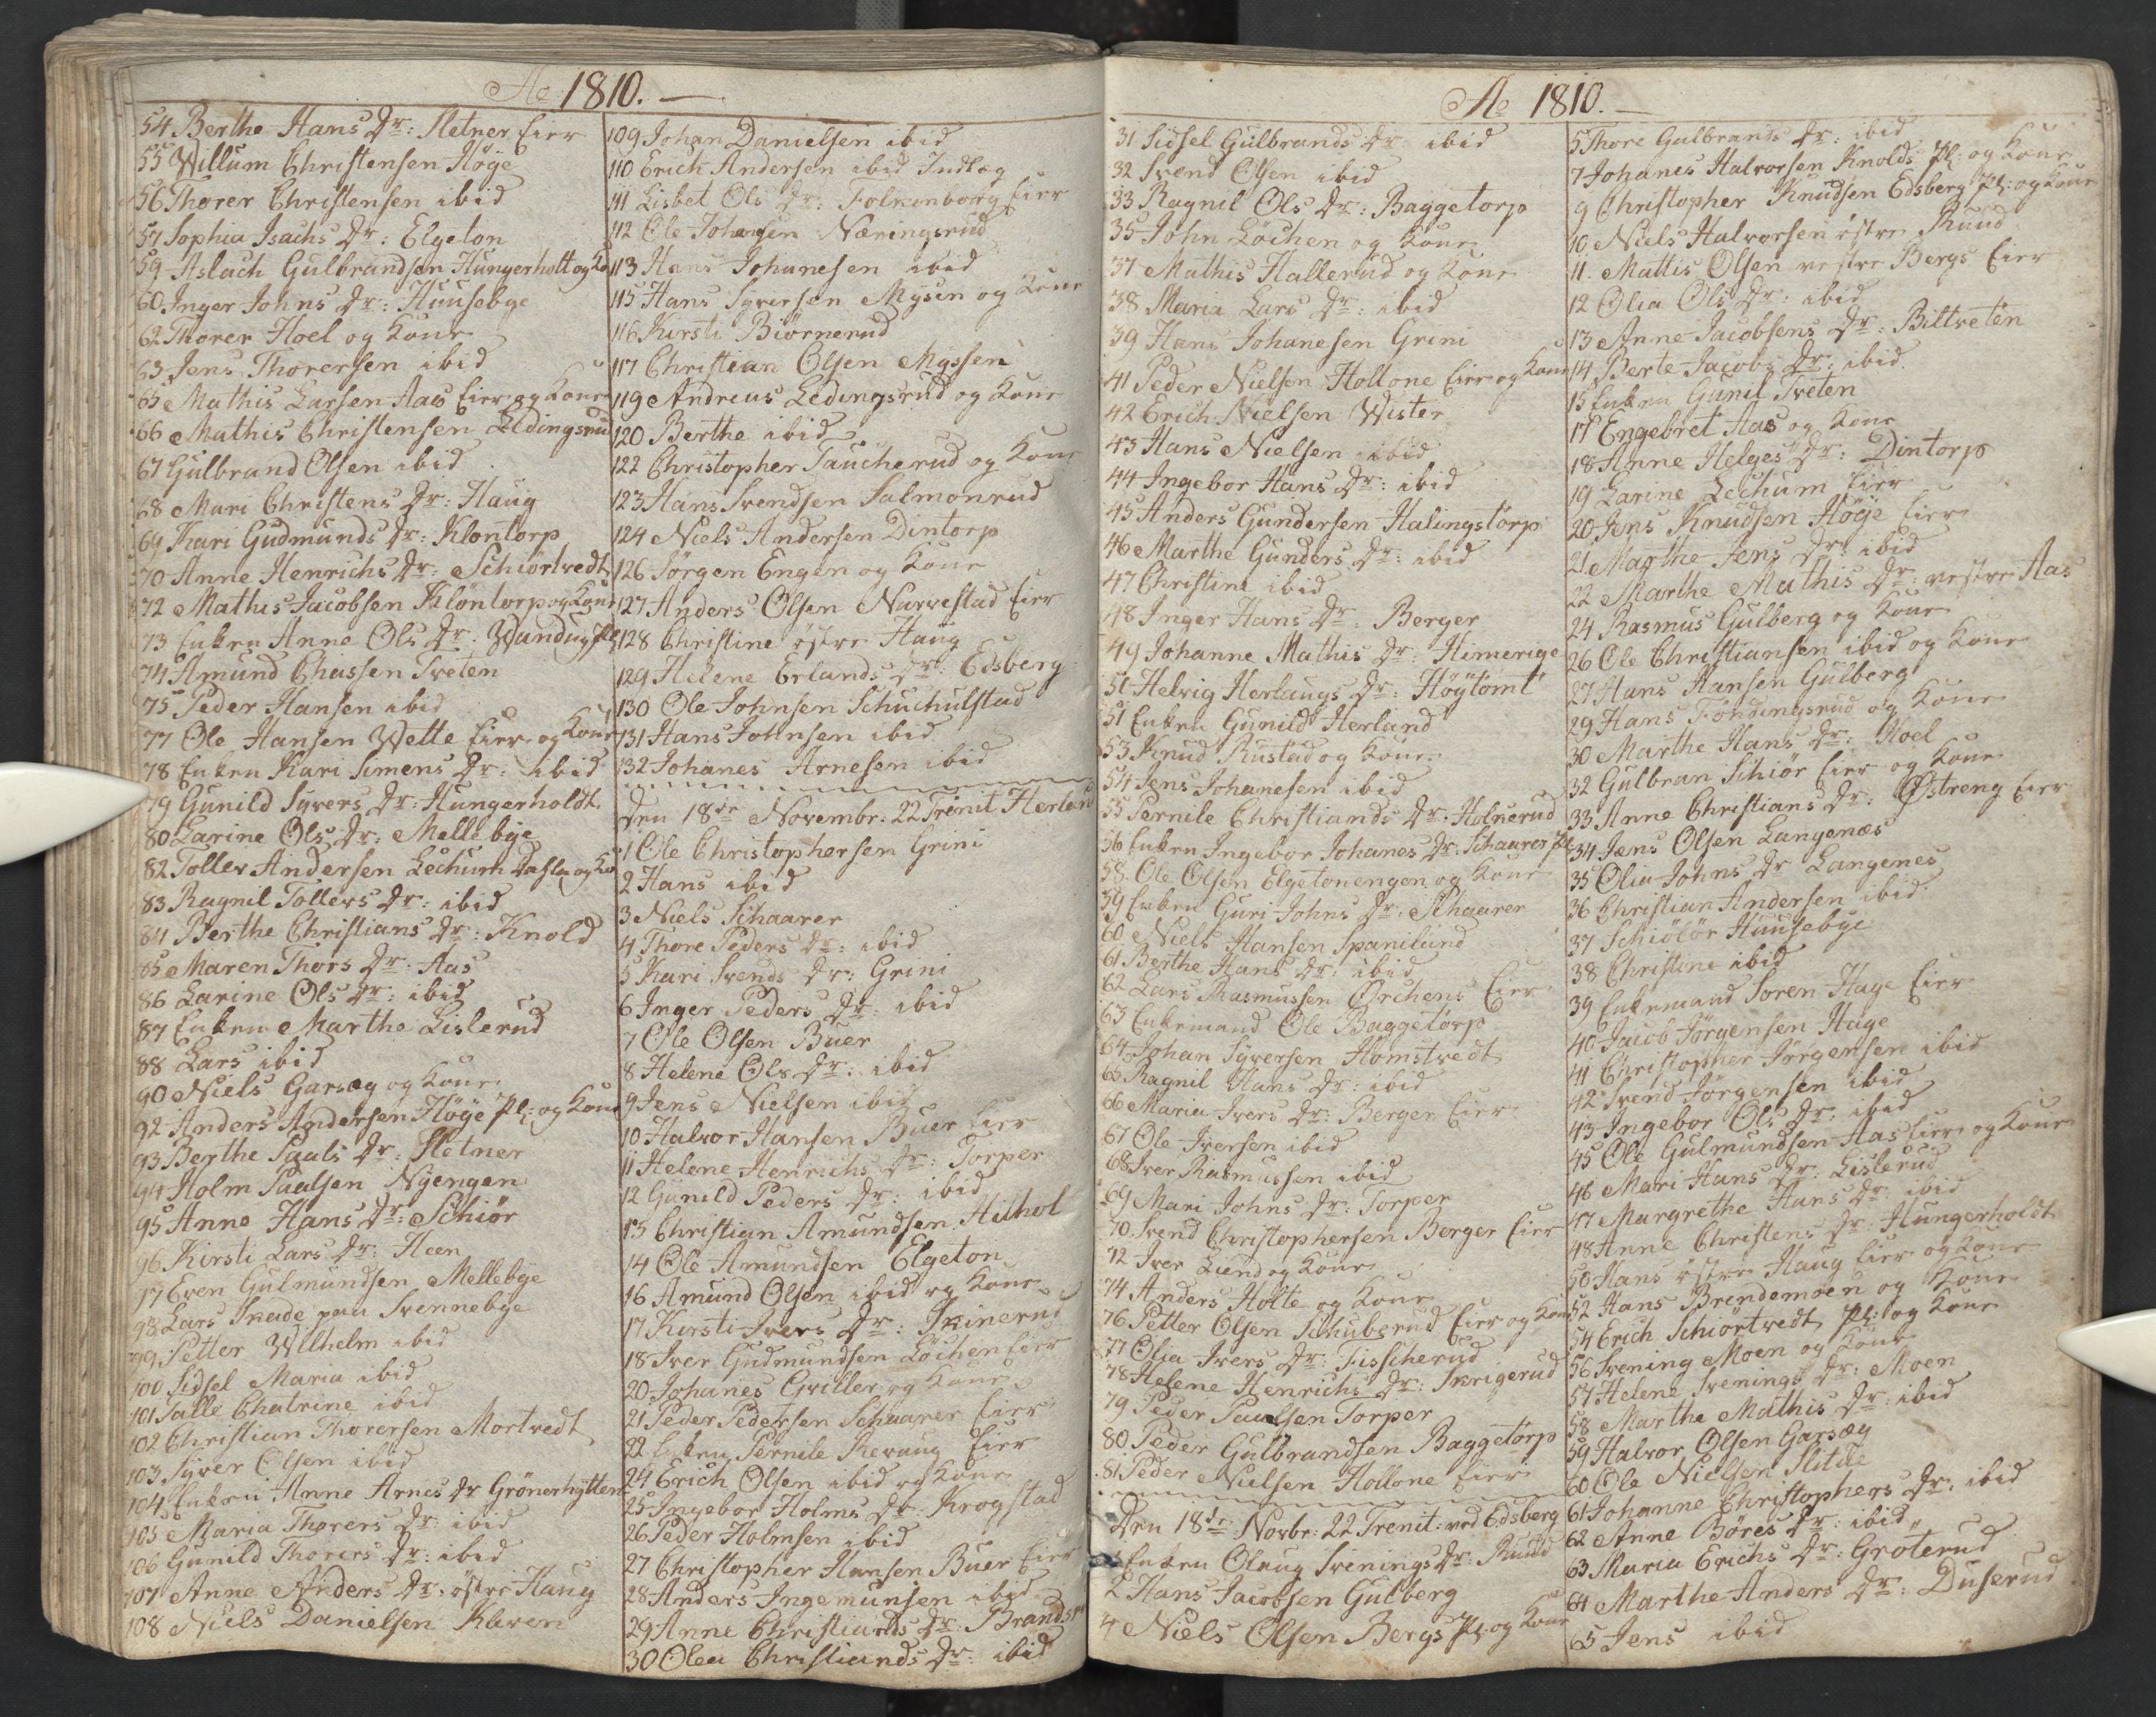 Ao 1810.
54 Berthe Hans Dr: Sletner Eier
55 Willum Christensen Höye
56 Thorer Christensen ibid
57 Sophia Isachs Dr: Elgeton
59 Aslach Gulbrandsen Hungerholt og Ko
60 Inger Johns Dr: Huusebye
62 Thorer Hoel og Kone
63 Jens Thorersen ibid
65 Mathis Larsen Aas Eier og Kone
66 Mathis Christensen Ledingsrud
67 Gulbrand Olsen ibid
68 Mari Christens Dr: Haug
69 Kari Gudmunds Dr: Klontorp
70 Anne Henrichs Dr: Schiörtvedt
72 Mathis Jacobsen Klöntorp og Kone
73 Enken Anne Ols Dr:
74 Amund Chassen Tveten
75 Peder Hansen ibid
77 Ole Hansen Wette Eier og Kone
78 Enken Kari Simens Dr: ibid
79 Gunild Syvers Dr: Hungerholdt
80 Larine Ols Dr: Mellebye
82 Toller Andersen Lechum og Ko
83 Ragnil Tollers Dr: ibid
84 Berthe Christians Dr: Knold
85 Maren Thors Dr: Aas
86 Larine Ols Dr: ibid
87 Enken Marthe Lislerud
88 Lars ibid
90 Niels Garsæg og Kone
92 Anders Andersen Höye Pl: og Kone
93 Berthe Paals Dr: Sletner
94 Holm Paalsen Nÿengen
95 Anne Hans Dr: Schiör
96 Kirsti Lars Dr: Heen
97 Even Gulmundsen Mellebye
98 Lars Skade paa Svennebye
99 Petter Wilhelm ibid
100 Sidsel Maria ibid
101 Talle Chatrine ibid
102 Christian Thorersen Mortvedt
103 Syver Olsen ibid
104 Enken Anne Arnes Dr Grönerhytten
105 Maria Thorers Dr: ibid
106 Gunild Thorers Dr: ibid
107 Anne Anders Dr: östre Haug
108 Niels Danielsen Klaven
109 Johan Danielsen ibid
110 Erich Andersen ibid Indlæg
111 Lisbet Ols Dr: Folkenborg Eier
112 Ole Johansen Næringsrud
113 Hans Johanesen ibid
115 Hans Syversen Mysen og Kone
116 Kirsti Biörnerud
117 Christian Olsen Myssen
119 Andreas Ledingsrud og Kone
120 Berthe ibid
122 Christopher Taucherud og Kone
123 Hans Svendsen Salmonrud
124 Niels Andersen Dintorp
126 Jörgen Engen og Kone
127 Anders Olsen Narvestad Eier
128 Christine östre Haug
129 Helene Erlands Dr: Edsberg
130 Ole Johnsen Schuchulstad
131 Hans Johnsen ibid
132 Johanes Arnesen ibid
Den 18de Novembr: 22 Trinit Herland
1 Ole Christophersen Grini
2 Hans ibid
3 Niels Schaarer
4 Thore Peders Dr: ibid
5 Kari Svends Dr: Grini
6 Inger Peders Dr: ibid
7 Ole Olsen Buer
8 Helene Ols Dr: ibid
9 Jens Nielsen ibid
10 Halvor Hansen Buer Eier
11 Helene Henrichs Dr: Torper
12 Gunild Peders Dr: ibid
13 Christian Amundsen Hithol
14 Ole Amundsen Elgeton
16 Amund Olsen ibid og Kone
17 Kirsti Ivers Dr: Skinerud
18 Iver Gudmundsen Löchen Eier
20 Johanes Griller og Kone
21 Peder Pedersen Schaarer Eier
22 Enken Pernile Revaug Eier
24 Erich Olsen ibid og Kone
25 Ingebor Holms Dr: Krogstad
26 Peder Holmsen ibid
27 Christopher Hansen Buer Eier
28 Anders Ingemunsen ibid
29 Anne Christiands Dr: Brandsr
30 Olea Christiands Dr: ibid
Ao 1810.
31 Sidsel Gulbrands Dr: ibid
32 Svend Olsen ibid
33 Ragnil Ols Dr: Baggetorp
35 John Löchen og Kone
37 Mathis Hallerud og Kone
38 Maria Lars Dr: ibid
39 Hans Johanesen Grini
41 Peder Nielsen Hollone Eier og Kone
42 Erich Nielsen Wister
43 Hans Nielsen ibid
44 Ingebor Hans Dr: ibid
45 Anders Gundersen Halingstorp
46 Marthe Gunders Dr: ibid
47 Christine ibid
48 Inger Hans Dr: Berger
49 Johanne Mathis Dr: Himerige
51 Helvig Herlaugs Dr: Höÿtomt
51 Enken Gunild Herland
53 Knud Rustad og Kone
54 Jens Johanesen ibid
55 Pernile Christiands Dr: Holnerud
56 Enken Ingebor Johanes Dr: Schaarer Pl
58 Ole Olsen Elgetonengen og Kone
59 Enken Guri Johns Dr: Schaarer
60 Niels Hansen Spanilund
61 Berthe Hans Dr: ibid
62 Lars Rasmussen Orchens Eier
63 Enkemand Ole Baggetorp
64 Johan Syversen Homstvedt
65 Ragnil Hans Dr: ibid
66 Maria Ivers Dr: Berger Eier
67 Ole Iversen ibid
68 Iver Rasmussen ibid
69 Mari Johns Dr: Torper
70 Svend Christophersen Berger Eier
72 Iver Lund og Kone
74 Anders Holte og Kone
76 Petter Olsen Schuberud Eier og Kone
77 Olia Ivers Dr: Fisscherud
78 Helene Henrichs Dr: Skrigerud
79 Peder Paulsen Torper
80 Peder Gulbrandsen Baggetorp
81 Peder Nielsen Hollone Eier
Den 18de Novbr: 22 Trenit: ved Edsberg
1 Enken Olaug Svenings Dr: Ruud
2 Hans Jacobsen Gulberg
4 Niels Olsen Bergs Pl: og Kone
5 Thore Gulbrands Dr: ibid
7 Johanes Halvorsen Knolds Pl: og Kone
9 Christopher Knudsen Edsberg Pl: og Kone
10 Niels Halvorsen östre Ruud
11. Mattis Olsen vestre Bergs Eier
12 Olia Ols Dr: ibid
13 Anne Jacobsens Dr: Biltveten
14 Berte Jacobs Dr: ibid
15 Enken Gunil Tveten
17 Engebret Aas og Kone
18 Anne Helges Dr: Dintorp
19 Larine Lechum Eier
20 Jens Knudsen Höye Eier
21 Marthe Jens Dr: ibid
22 Marthe Mathis Dr: vestre Aas
24 Rasmus Gulberg og Kone
26 Ole Christiansen ibid og Kone
27 Hans Hansen Gulberg
29 Hans Föndingsrud og Kone
30 Marthe Hans Dr: Hoel
32 Gulbran Schiör Eier og Kone
33 Anne Christians Dr: Östreng Eier
34 Jens Olsen Langenæs
35 Olia Johns Dr Langenes
36 Christian Andersen ibid
37 Schiölör Huusebye
38 Christine ibid
39 Enkemand Soren Hage Eier
40 Jacob Jörgensen Hage
41 Christopher Jörgensen ibid
42 Svend Jörgensen ibid
43 Ingebor Ols Dr: ibid
45 Ole Gulmundsen Aas Eier og Kone
46 Mari Hans Dr: Lislerud
47 Margrethe Hans Dr: ibid
48 Anne Christens Dr: Hungerholdt
50 Hans östre Haug Eier og Kone
52 Hans Brendemoen og Kone
54 Erich Schiörtvedt Pl: og Kone
56 Svening Moen og Kone
57 Helene Svenings Dr: Moen
58 Marthe Mathis Dr: ibid
59 Halvor Olsen Garsæg
60 Ole Nielsen Slitue
61 Johanne Christophers Dr: ibid
62 Anne Böres Dr: ibid
63 Maria Erichs Dr: Groterud
64 Marthe Anders Dr: Duserud
65 Jens ibid